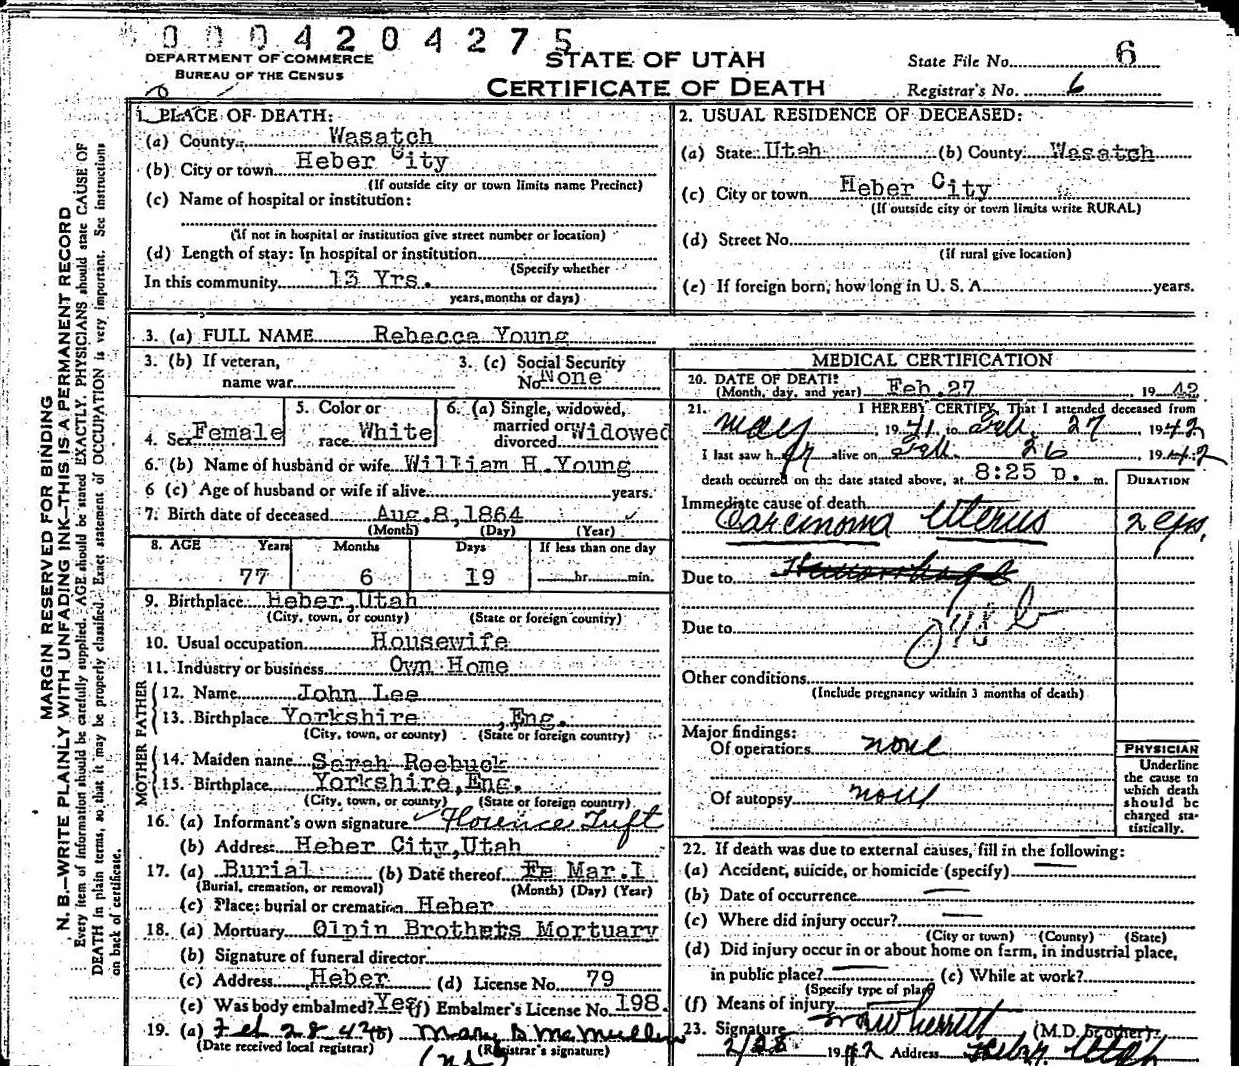 0004204275
DEPARTMENT OF COMMERCE
BUREAU OF THE CENSUS
STATE OF UTAH
CERTIFICATE OF DEATH
State File No. 6
Registrar's No. 6
MARGIN RESERVED FOR BINDING
N. B.—WRITE PLAINLY WITH UNFADING INK—THIS IS A PERMANENT RECORD
Every item of information should be carefully supplied. AGE should be stated EXACTLY. PHYSICIANS should state CAUSE OF
DEATH in plain terms, so that it may be properly classified. Exact statement of OCCUPATION is very important. See instructions
on back of certificate.
1. PLACE OF DEATH:
(a) County Wasatch
(b) City or town Heber City
(If outside city or town limits name Precinct)
(c) Name of hospital or institution:
(If not in hospital or institution give street number or location)
(d) Length of stay: In hospital or institution
(Specify whether
In this community 13 Yrs.
years, months or days)
2. USUAL RESIDENCE OF DECEASED:
(a) State Utah (b) County Wasatch
(c) City or town Heber City
(If outside city or town limits write RURAL)
(d) Street No.
(If rural give location)
(e) If foreign born, how long in U. S. A. years.
3. (a) FULL NAME Rebecca Young
3. (b) If veteran,
name war
3. (c) Social Security
No. None
4. Sex Female
5. Color or
race White
6. (a) Single, widowed,
married or
divorced Widowed
6. (b) Name of husband or wife William H. Young
6 (c) Age of husband or wife if alive years.
7. Birth date of deceased Aug. 8, 1864
(Month) (Day) (Year)
8. AGE Years Months Days If less than one day
77 6 19 hr. min.
9. Birthplace Heber, Utah
(City, town, or county) (State or foreign country)
10. Usual occupation Housewife
11. Industry or business Own Home
FATHER
12. Name John Lee
13. Birthplace Yorkshire, Eng.
(City, town, or county) (State or foreign country)
MOTHER
14. Maiden name Sarah Roebuck
15. Birthplace Yorkshire, Eng.
(City, town, or county) (State or foreign country)
16. (a) Informant's own signature Florence Tuft
(b) Address Heber City, Utah
17. (a) Burial (b) Date thereof Fe Mar. 1
(Burial, cremation, or removal) (Month) (Day) (Year)
(c) Place: burial or cremation Heber
18. (a) Mortuary Olpin Brothers Mortuary
(b) Signature of funeral director
(c) Address Heber (d) License No. 79
(e) Was body embalmed? Yes (f) Embalmer's License No. 198
19. (a) Feb 28 42 (b) Mary D McMullen
(Date received local registrar) (Registrar's signature)
MEDICAL CERTIFICATION
20. DATE OF DEATH: Feb. 27 19 42
(Month, day, and year)
21. I HEREBY CERTIFY, That I attended deceased from
May 19 41 to Feb. 27 19 42
I last saw her alive on Feb. 26 19 42
death occurred on the date stated above, at 8:25 p. m.
DURATION
Immediate cause of death
Carcinoma Uterus 2 yrs.
Due to Hemorrhage
Due to
048 b
Other conditions
(Include pregnancy within 3 months of death)
Major findings:
Of operations none
Of autopsy none
PHYSICIAN
Underline
the cause to
which death
should be
charged sta-
tistically.
22. If death was due to external causes, fill in the following:
(a) Accident, suicide, or homicide (specify)
(b) Date of occurrence
(c) Where did injury occur?
(City or town) (County) (State)
(d) Did injury occur in or about home on farm, in industrial place,
in public place? (e) While at work?
(Specify type of place)
(f) Means of injury
23. Signature (M.D. or other)
2/28 1942 Address Heber Utah